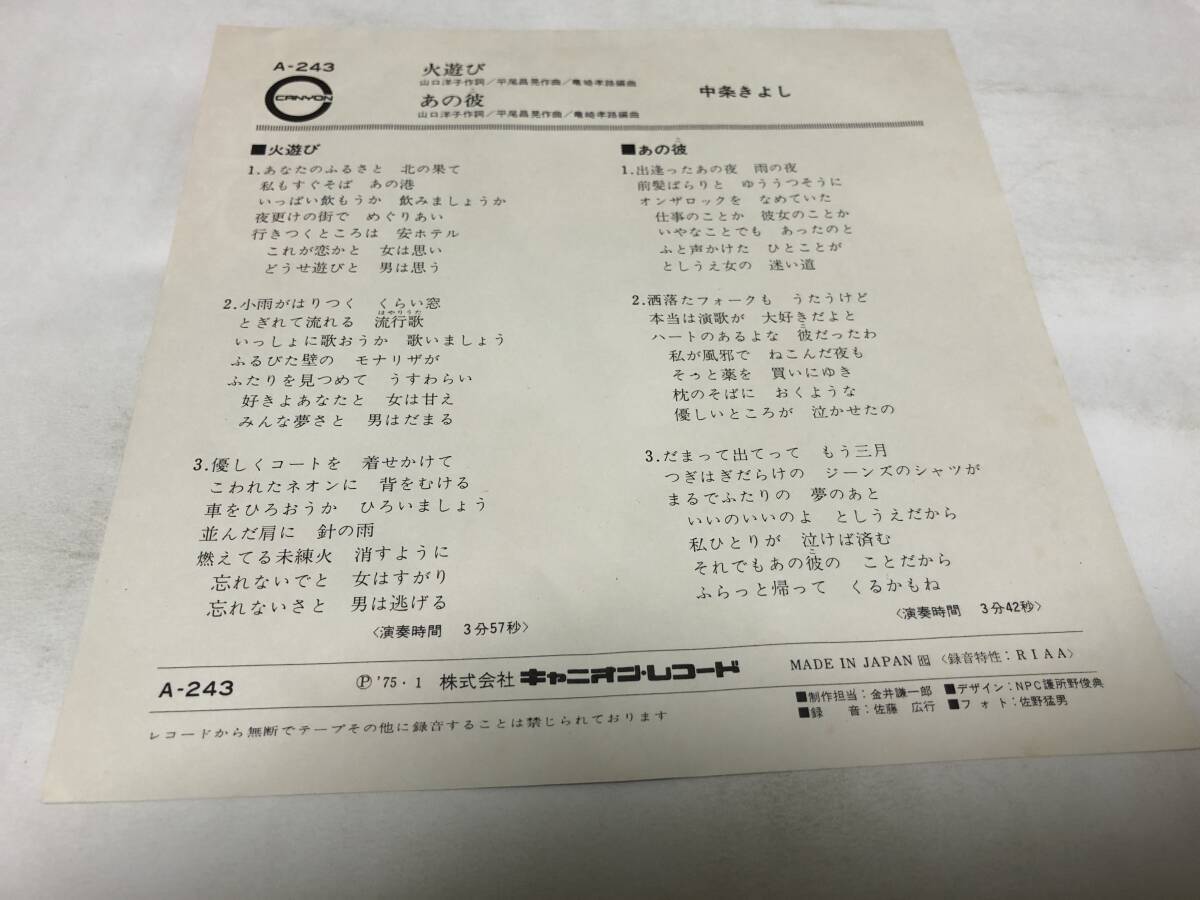 A-243
CANYON
火遊び
山口洋子作詞／平尾昌晃作曲／竜崎孝路編曲
あの彼
山口洋子作詞／平尾昌晃作曲／竜崎孝路編曲
中条きよし
■火遊び
1.あなたのふるさと 北の果て
私もすぐそば あの港
いっぱい飲もうか 飲みましょうか
夜更けの街で めぐりあい
行きつくところは 安ホテル
これが恋かと 女は思い
どうせ遊びと 男は思う
2.小雨がはりつく くらい窓
とぎれて流れる 流行歌
はやりうた
いっしょに歌おうか 歌いましょう
ふるびた壁の モナリザが
ふたりを見つめて うすわらい
好きよあなたと 女は甘え
みんな夢さと 男はだまる
3.優しくコートを 着せかけて
こわれたネオンに 背をむける
車をひろおうか ひろいましょう
並んだ肩に 針の雨
燃えてる未練火 消すように
忘れないでと 女はすがり
忘れないさと 男は逃げる
〈演奏時間 3分57秒〉
■あの彼
1.出逢ったあの夜 雨の夜
前髪ぱらりと ゆううつそうに
オンザロックを なめていた
仕事のことか 彼女のことか
いやなことでも あったのと
ふと声かけた ひとことが
としうえ女の 迷い道
2.洒落たフォークも うたうけど
本当は演歌が 大好きだよと
ハートのあるよな 彼だったわ
私が風邪で ねこんだ夜も
そっと薬を 買いにゆき
枕のそばに おくような
優しいところが 泣かせたの
3.だまって出てって もう三月
つぎはぎだらけの ジーンズのシャツが
まるでふたりの 夢のあと
いいのいいのよ としうえだから
私ひとりが 泣けば済む
それでもあの彼の ことだから
ふらっと帰って くるかもね
〈演奏時間 3分42秒〉
A-243
Ⓟ'75・1 株式会社 キャニオン・レコード
MADE IN JAPAN 〈録音特性：RIAA〉
レコードから無断でテープその他に録音することは禁じられております
■制作担当：金井謙一郎 ■デザイン：NPC護所野俊典
■録 音：佐藤 広行 ■フォト：佐野猛男